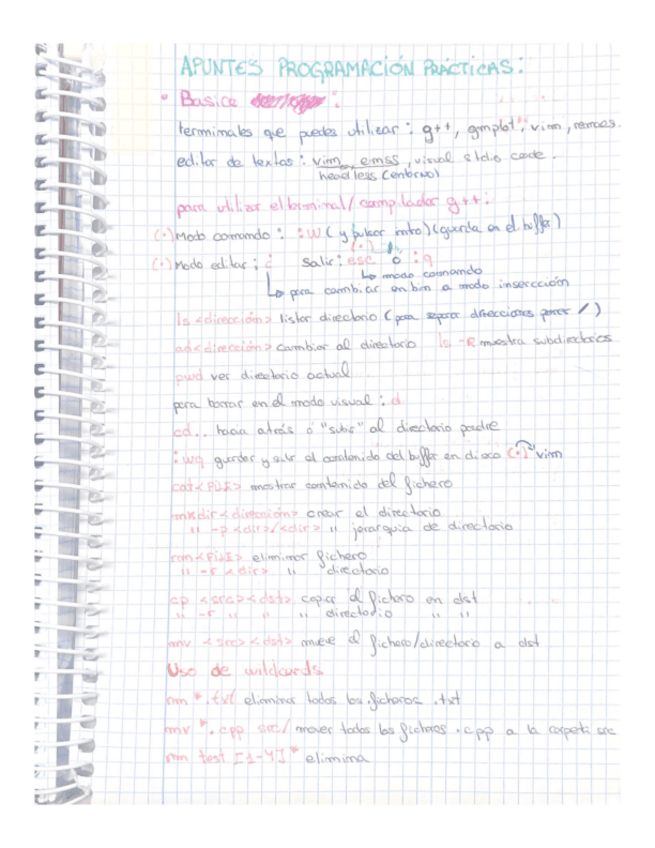 APUNTES PROGRAMACIÓN PRÁCTICAS:
• Basice :
terminales que puedes utilizar: g++, gmplot, vim,
editor de textos: vim, emss, visual stdio code.
headless (enbrwo)
para utilizar el terminal/compilador g++:
(·) Modo comando: :W (y pulsar intro) (guarda en el buffer)
(·)
(·) Modo editar: i Salir: esc o :q
↳ modo comnando
↳ para cambiar en bim a modo insercción
ls <dirección> listar directorio (para separar direcciones poner /)
cd <dirección> cambiar al directorio ls -R muestra subdirectorios
pwd ver directorio actual
para borrar en el modo visual: d
cd.. hacia atrás ó "subir" al directorio padre
:wq guardar y salir el contenido del buffer en disco (·) vim
cat <FILE> mostrar contenido del fichero
mkdir <dirección> crear el directorio
" -p <dir>/<dir> " jerarquia de directorio
rm <FILE> eliminar fichero
" -r <dir> " directorio
cp <src> <dst> copiar el fichero en dst
" -r " " " directodio " "
mv <src> <dst> mueve el fichero/directorio a dst
Uso de wildcards
rm *.txt eliminar todos los ficheros .txt
mv *.cpp src/ mover todos los ficheros .cpp a la carpeta src
rm test [1-4]* elimina